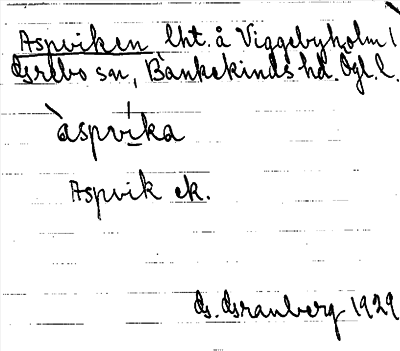 Aspviken lht. å Viggebyholm,
Grebo sn, Bankekinds hd. Ögl. l.
àspvi̲ka
Aspvik ek.
G. Granberg 1929